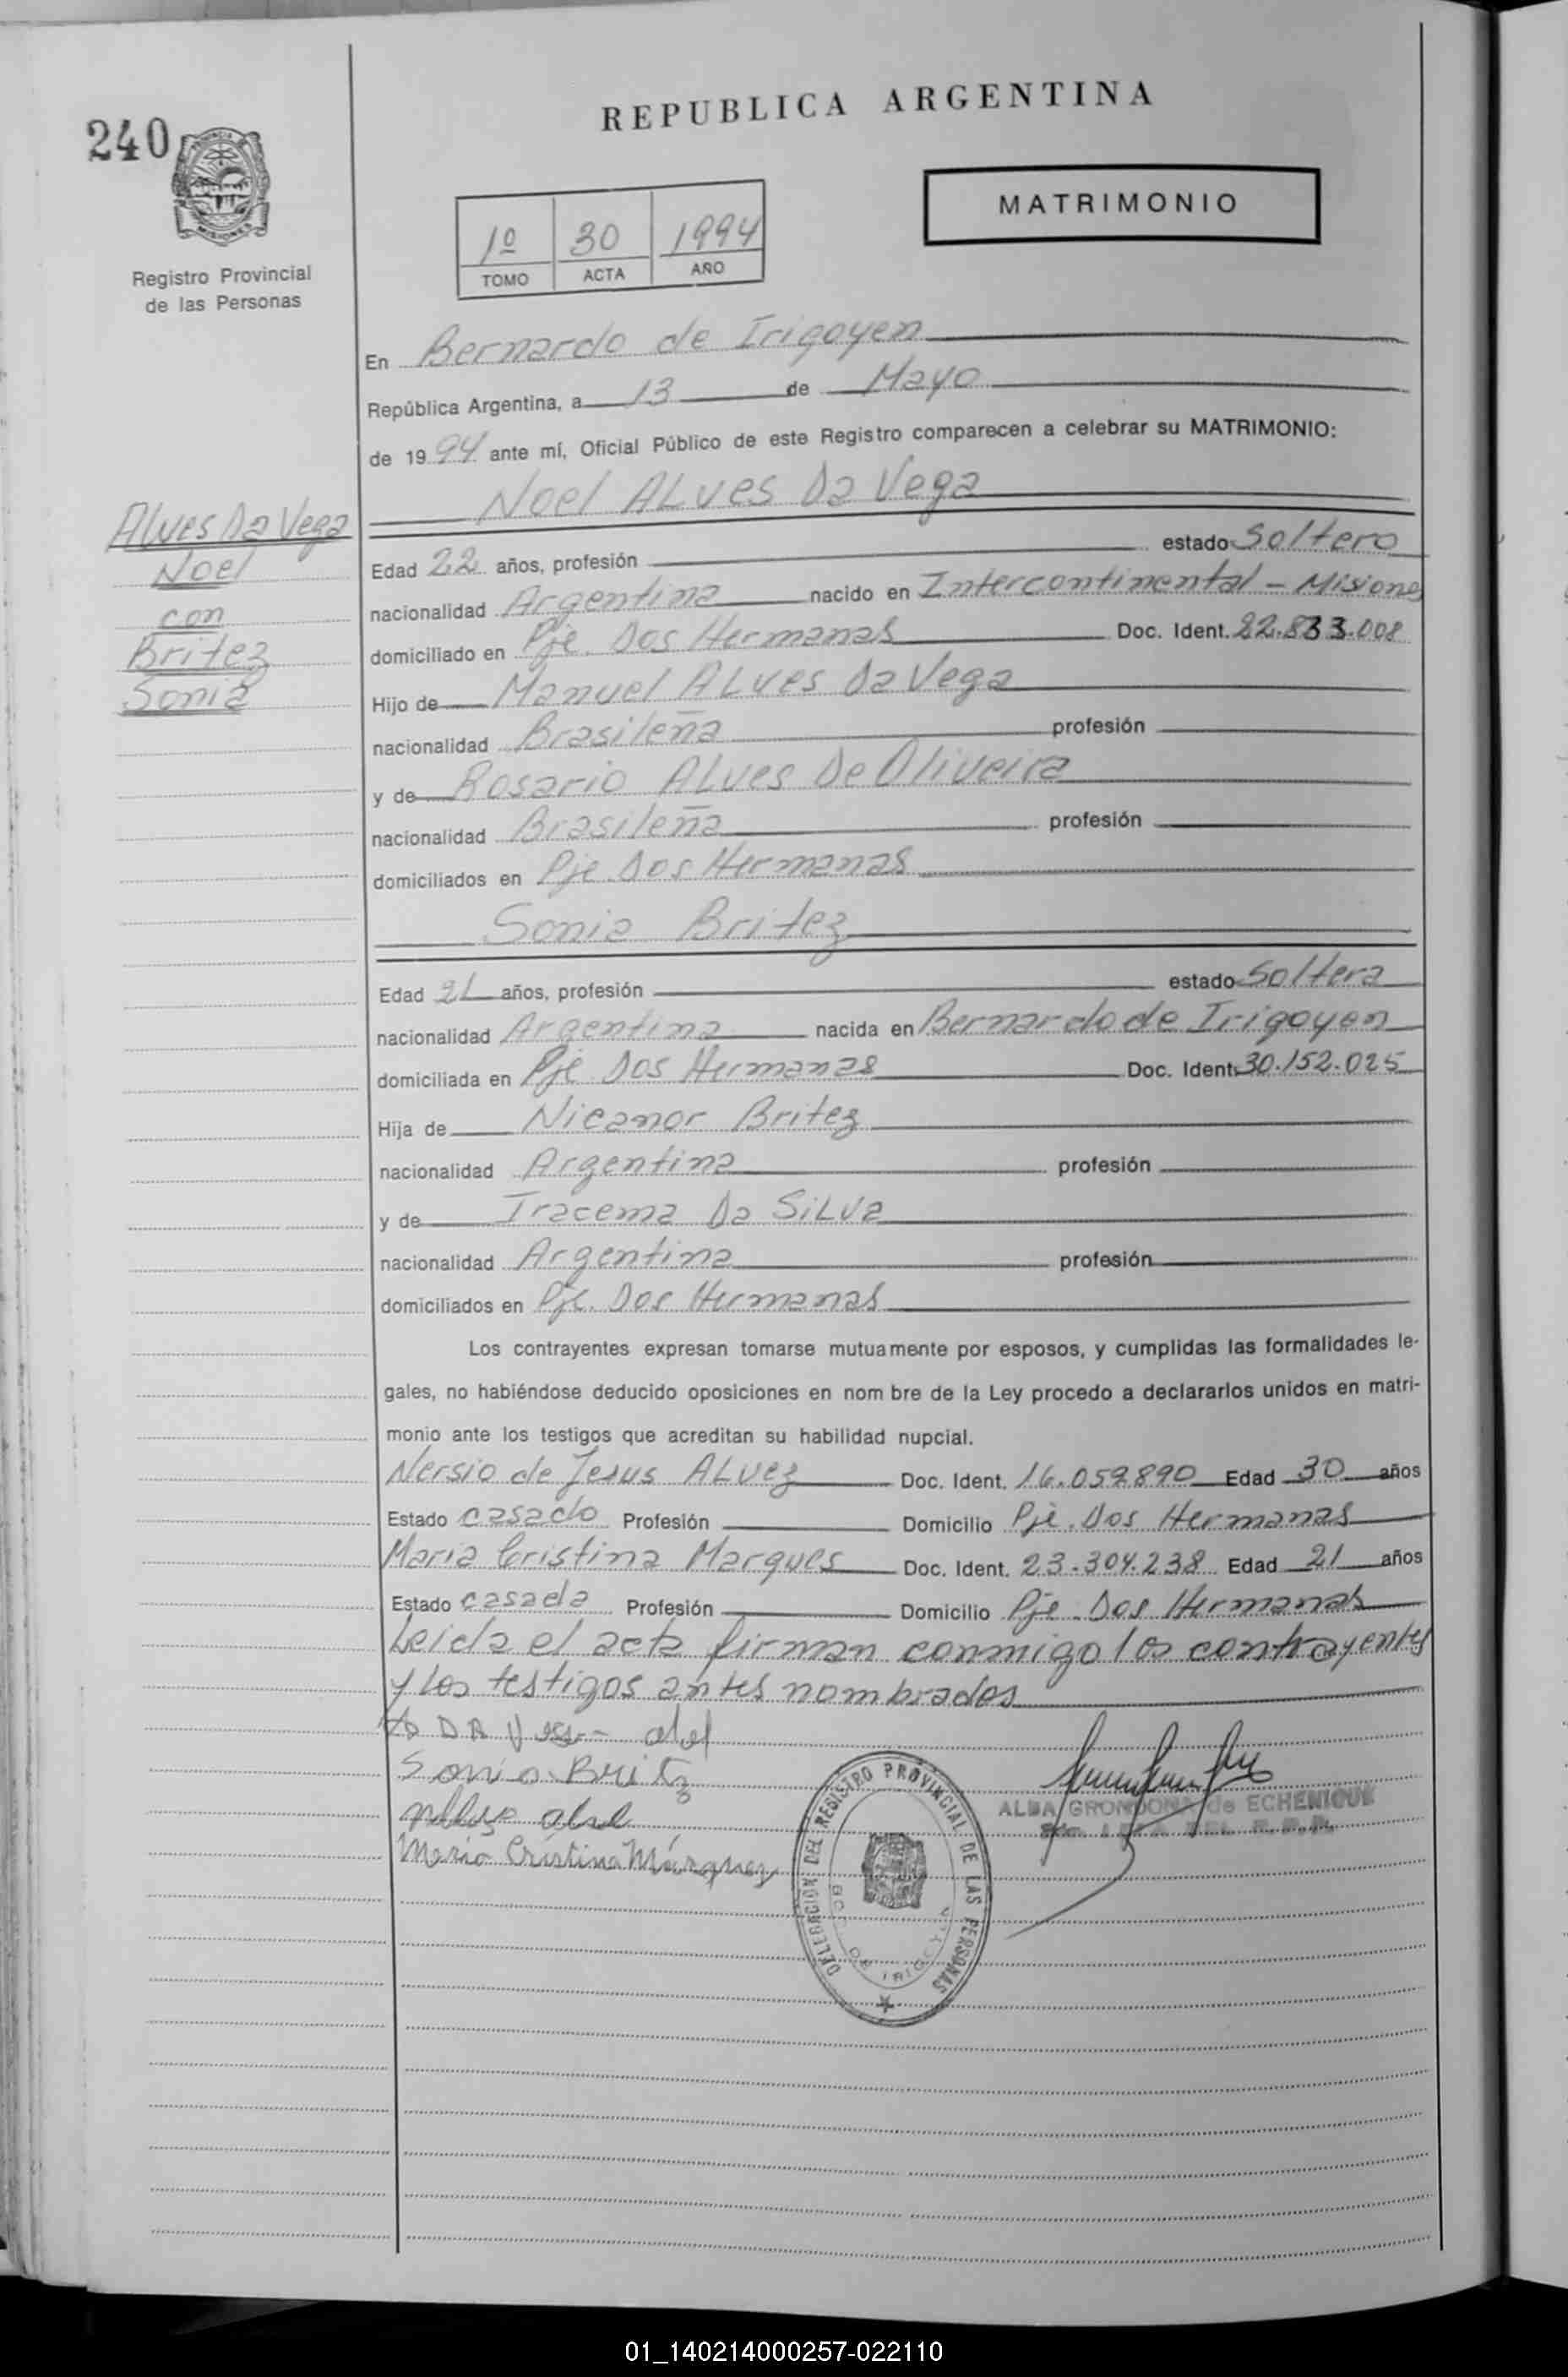 240
REPUBLICA ARGENTINA
MATRIMONIO
1º 30 1994
TOMO ACTA AÑO
Registro Provincial
de las Personas
En Bernardo de Irigoyen
República Argentina, a 13 de Mayo
de 1994 ante mí, Oficial Público de este Registro comparecen a celebrar su MATRIMONIO:
Noel ALves Da Vega
Alves Da Vega
Noel
con
Britez
Sonia
Edad 22 años, profesión estado Soltero
nacionalidad Argentina nacido en Intercontinental - Misiones
domiciliado en Pje. Dos Hermanas Doc. Ident. 22.833.008
Hijo de Manuel ALves Da Vega
nacionalidad Brasileña profesión
y de Rosario ALves De Oliveira
nacionalidad Brasileña profesión
domiciliados en Pje. Dos Hermanas
Sonia Britez
Edad 21 años, profesión estado Soltera
nacionalidad Argentina nacida en Bernardo de Irigoyen
domiciliada en Pje. Dos Hermanas Doc. Ident. 30.152.025
Hija de Nicanor Britez
nacionalidad Argentina profesión
y de Iracema Da SiLva
nacionalidad Argentina profesión
domiciliados en Pje. Dos Hermanas
Los contrayentes expresan tomarse mutuamente por esposos, y cumplidas las formalidades le-
gales, no habiéndose deducido oposiciones en nom bre de la Ley procedo a declararlos unidos en matri-
monio ante los testigos que acreditan su habilidad nupcial.
Nersio de Jesus ALvez Doc. Ident. 16.059890 Edad 30 años
Estado casado Profesión Domicilio Pje. Dos Hermanas
Maria Cristina Marques Doc. Ident. 23.304.238 Edad 21 años
Estado casada Profesión Domicilio Pje. Dos Hermanas
Leida el acta firman conmigo los contrayentes
y los testigos antes nombrados
Sonia Britz
Maria Cristina Márquez
DELEGACION DEL REGISTRO PROVINCIAL DE LAS PERSONAS
BDO. DE IRIGOYEN
ALBA GRONDONA de ECHENIQUE
01_140214000257-022110